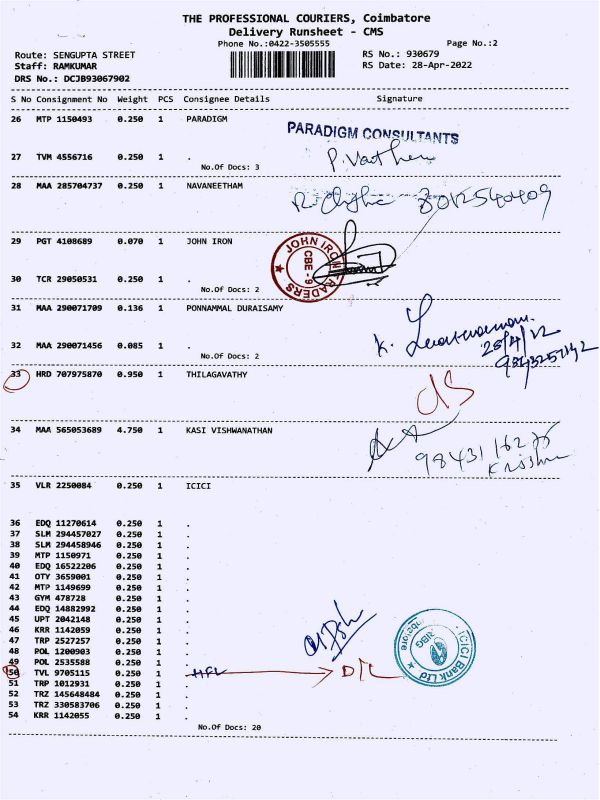 THE PROFESSIONAL COURIERS, Coimbatore
Delivery Runsheet - CMS
Phone No.:0422-3505555 Page No.:2
Route: SENGUPTA STREET RS No.: 930679
Staff: RAMKUMAR RS Date: 28-Apr-2022
DRS No.: DCJB93067902
S No Consignment No Weight PCS Consignee Details Signature
26 MTP 1150493 0.250 1 PARADIGM
PARADIGM CONSULTANTS
27 TVM 4556716 0.250 1 .
No.Of Docs: 3
28 MAA 285704737 0.250 1 NAVANEETHAM
29 PGT 4108689 0.070 1 JOHN IRON
JOHN IRON TRADERS
CBE - 9
30 TCR 29050531 0.250 1 .
No.Of Docs: 2
31 MAA 290071709 0.136 1 PONNAMMAL DURAISAMY
32 MAA 290071456 0.085 1 .
No.Of Docs: 2
33 HRD 707975870 0.950 1 THILAGAVATHY
34 MAA 565053689 4.750 1 KASI VISHWANATHAN
35 VLR 2250084 0.250 1 ICICI
36 EDQ 11270614 0.250 1 .
37 SLM 294457027 0.250 1 .
38 SLM 294458946 0.250 1 .
39 MTP 1150971 0.250 1 .
40 EDQ 16522206 0.250 1 .
41 OTY 3659001 0.250 1 .
42 MTP 1149699 0.250 1 .
43 GYM 478728 0.250 1 .
44 EDQ 14882992 0.250 1 .
45 UPT 2042148 0.250 1 .
46 KRR 1142059 0.250 1 .
47 TRP 2527257 0.250 1 .
48 POL 1200903 0.250 1 .
49 POL 2535588 0.250 1 .
50 TVL 9705115 0.250 1 HFL D/L
ICICI Bank Ltd
51 TRP 1012931 0.250 1 .
52 TRZ 145648484 0.250 1 .
53 TRZ 330583706 0.250 1 .
54 KRR 1142055 0.250 1 .
No.Of Docs: 20